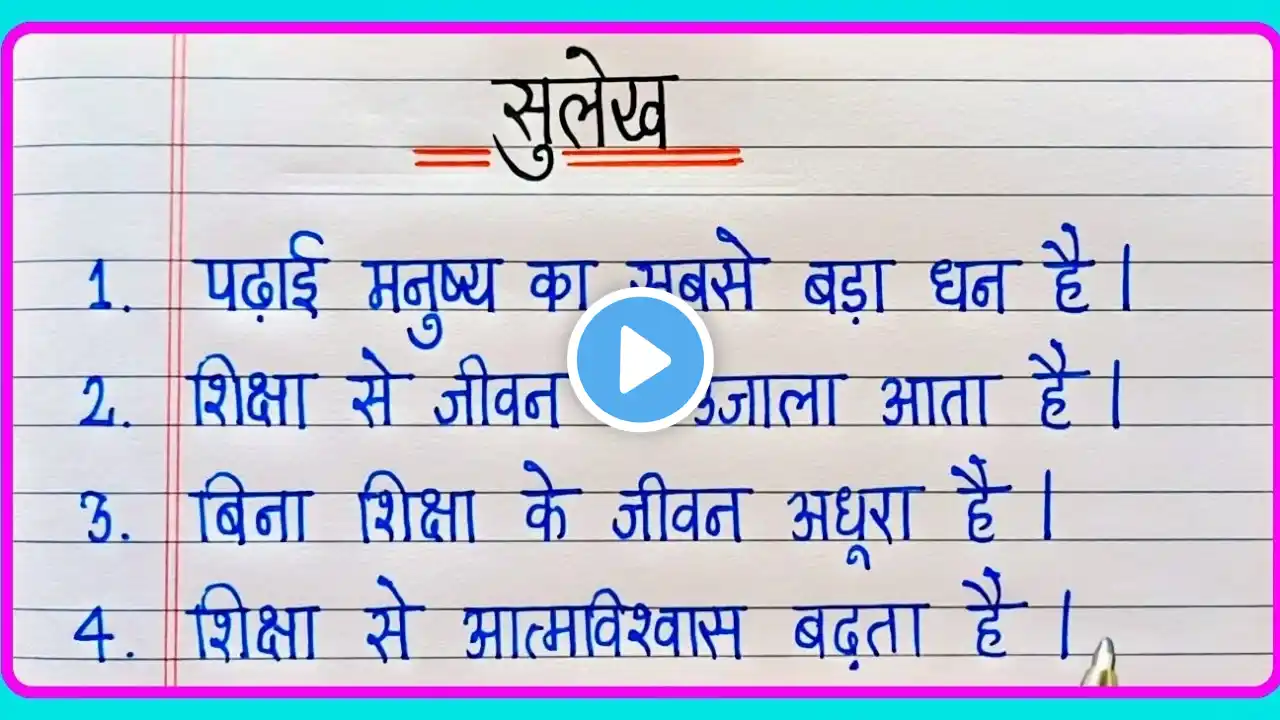 सुलेख
1. पढ़ाई मनुष्य का सबसे बड़ा धन है।
2. शिक्षा से जीवन उजाला आता है।
3. बिना शिक्षा के जीवन अधूरा है।
4. शिक्षा से आत्मविश्वास बढ़ता है।